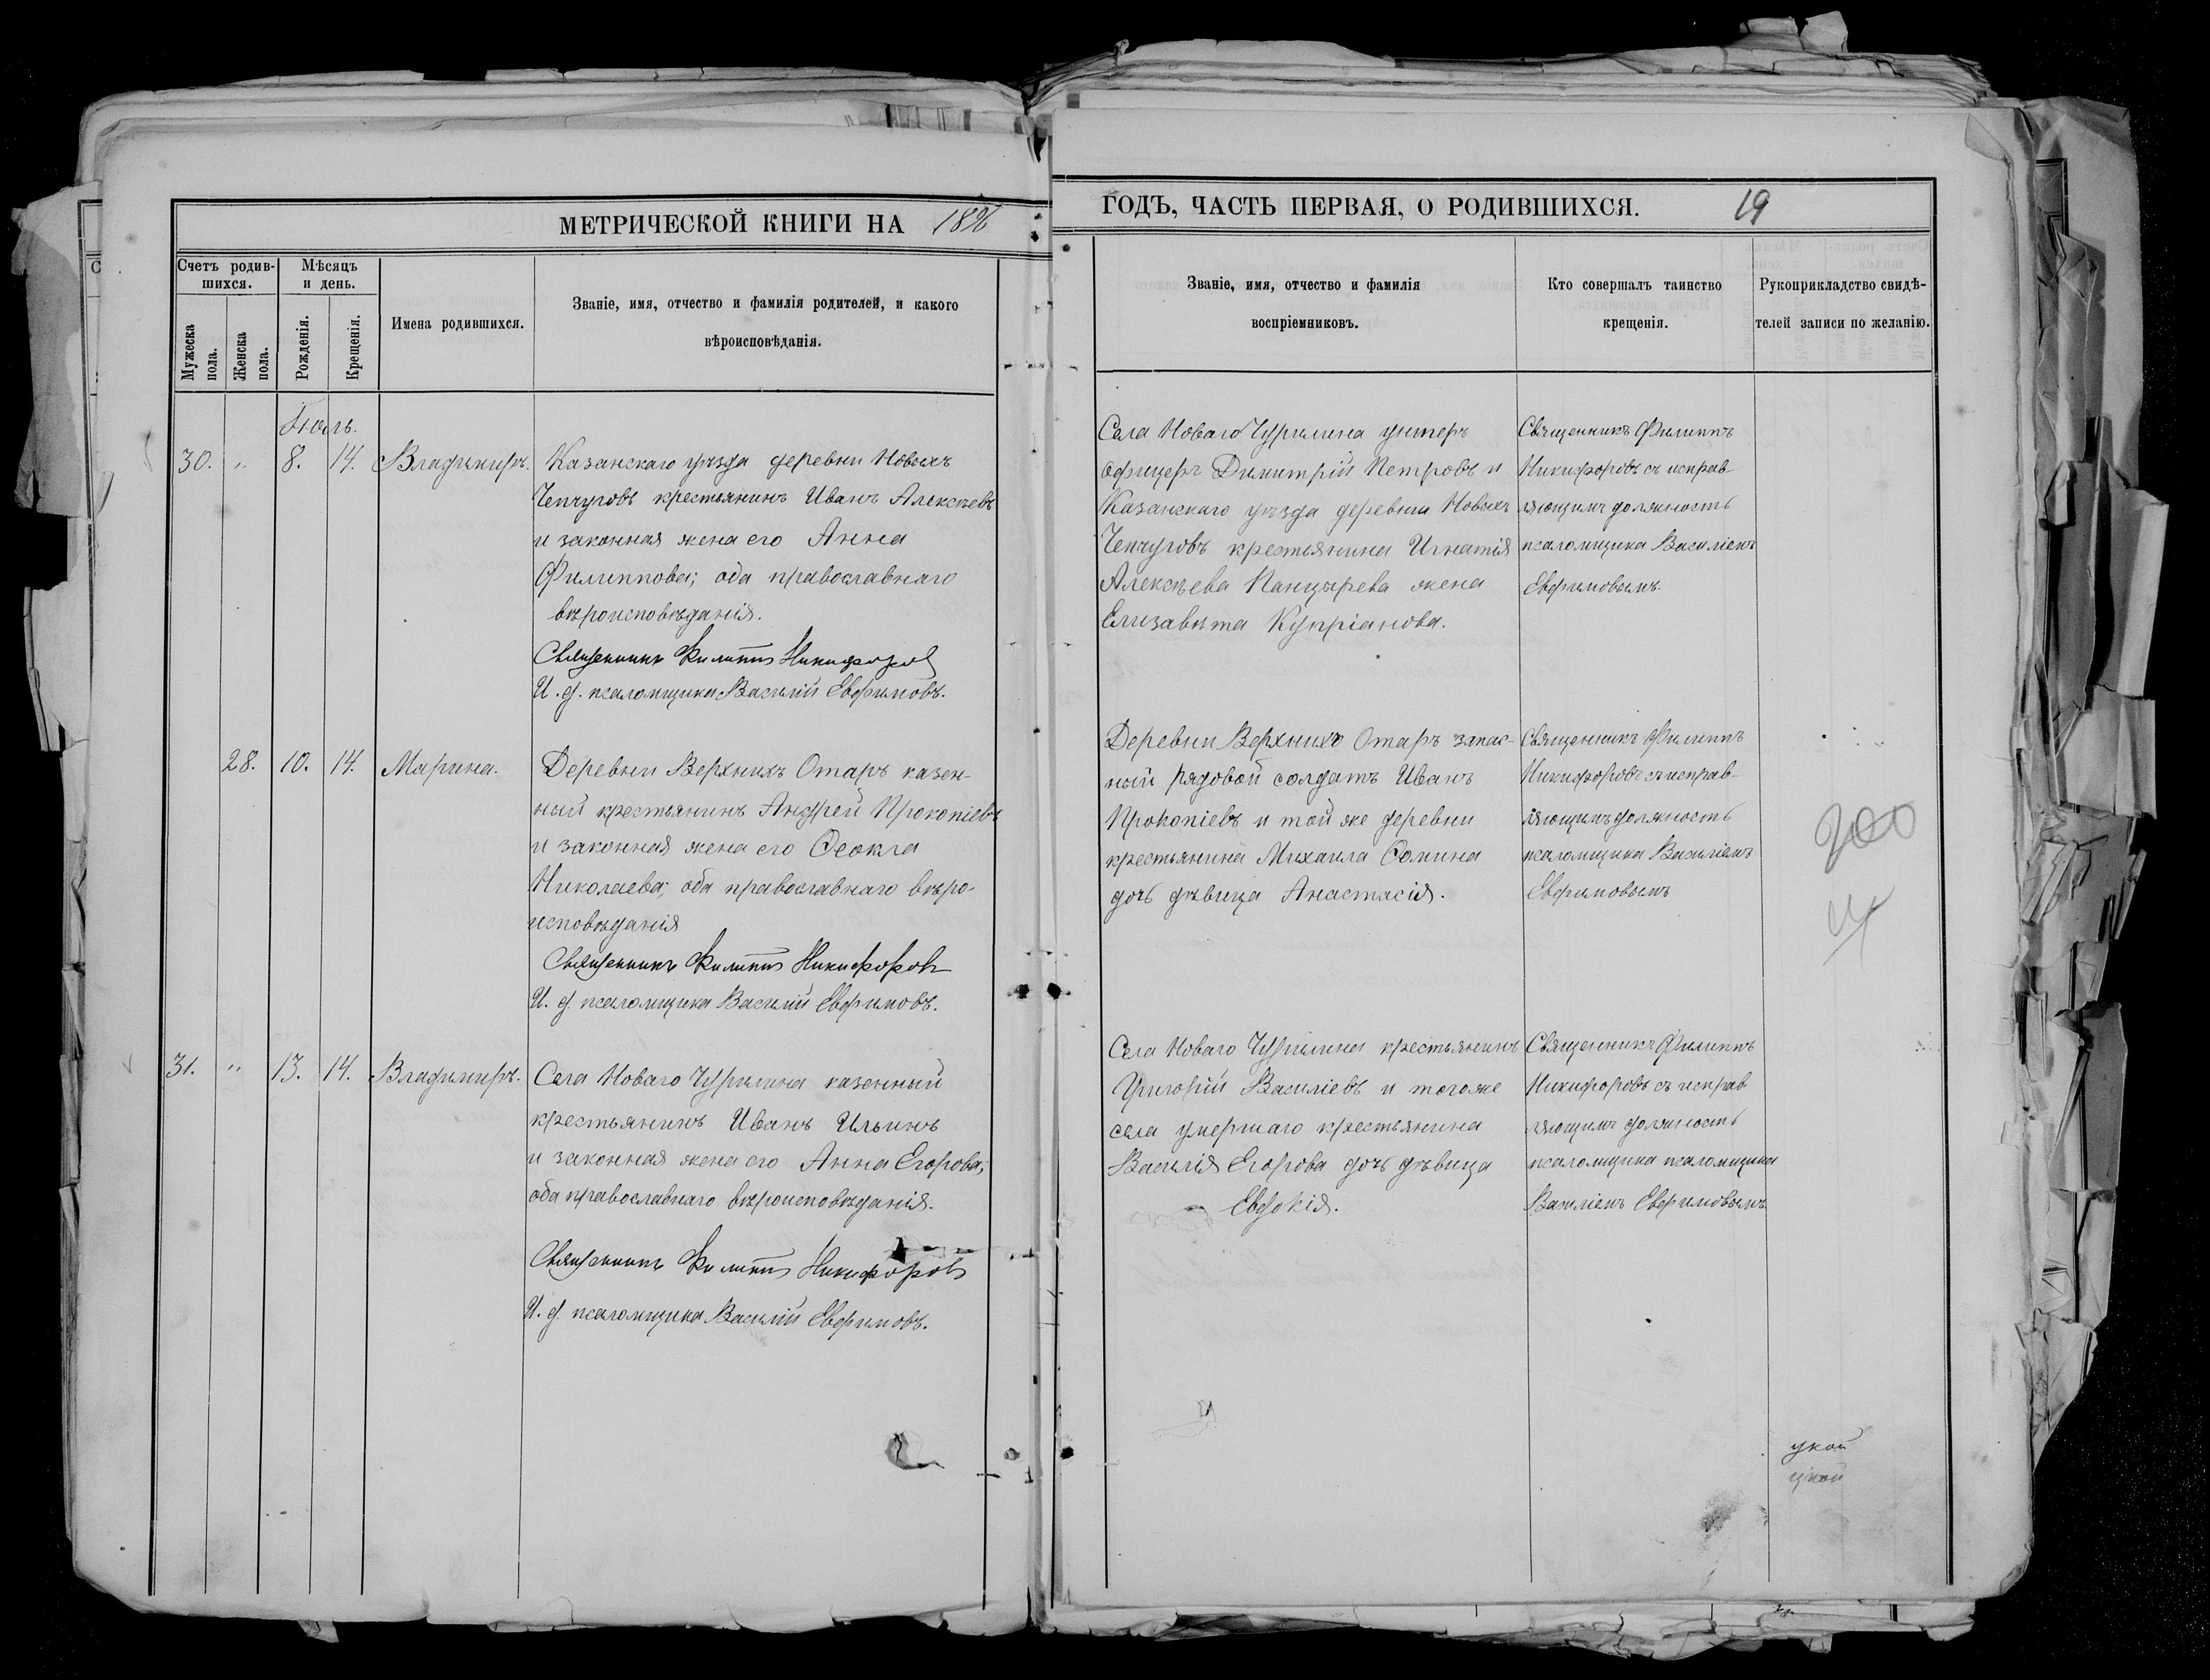 МЕТРИЧЕСКОЙ КНИГИ НА 18
Счетъ родив-
шихся.
Мѣсяцъ
и день.
Мужеска
пола.
Женска
пола.
Рожденія.
Крещенія.
Имена родившихся.
Званіе, имя, отчество и фамилія родителей, и какого
вѣроисповѣданія.
Іюль.
30. " 8. 14. Владимиръ. Казанскаго уѣзда деревни Новыхъ
Чепчуговъ крестьянинъ Иванъ Алексѣевъ
и законная жена его Анна
Филиппова; оба православнаго
вѣроисповѣданія.
Священникъ Филиппъ Никифоровъ
И. д. псаломщика Василій Евфимовъ.
28. 10. 14. Марина. Деревни Верхнихъ Отаръ казен-
ный крестьянинъ Андрей Прокопіевъ
и законная жена его Ѳеокла
Николаева; оба православнаго вѣро-
исповѣданія
Священникъ Филиппъ Никифоровъ
И. д. псаломщика Василій Евфимовъ.
31. " 13. 14. Владимиръ. Села Новаго Чурилина казенный
крестьянинъ Иванъ Ильинъ
и законная жена его Анна Егорова;
оба православнаго вѣроисповѣданія.
Священникъ Филиппъ Никифоровъ
И. д. псаломщика Василій Евфимовъ.
ГОДЪ, ЧАСТЬ ПЕРВАЯ, О РОДИВШИХСЯ. 19
Званіе, имя, отчество и фамилія
воспріемниковъ.
Кто совершалъ таинство
крещенія.
Рукоприкладство свидѣ-
телей записи по желанію.
Села Новаго Чурилина унтеръ
офицеръ Димитрій Петровъ и
Казанскаго уѣзда деревни Новыхъ
Чепчуговъ крестьянина Игнатія
Алексѣева Панцырева жена
Елизавѣта Купріанова.
Священникъ Филиппъ
Никифоровъ съ исправ-
ляющимъ должность
псаломщика Василіемъ
Евфимовымъ.
Деревни Верхнихъ Отаръ запас-
ный рядовой солдатъ Иванъ
Прокопіевъ и той же деревни
крестьянина Михаила Ѳомина
дочь дѣвица Анастасія.
Священникъ Филиппъ
Никифоровъ съ исправ-
ляющимъ должность
псаломщика Василіемъ
Евфимовымъ
200
Села Новаго Чурилина крестьянинъ
Григорій Василіевъ и тогоже
села умершаго крестьянина
Василія Егорова дочь дѣвица
Евдокія.
Священникъ Филиппъ
Никифоровъ съ исправ
ляющимъ должность
псаломщика псаломщика
Василіемъ Евфимовымъ